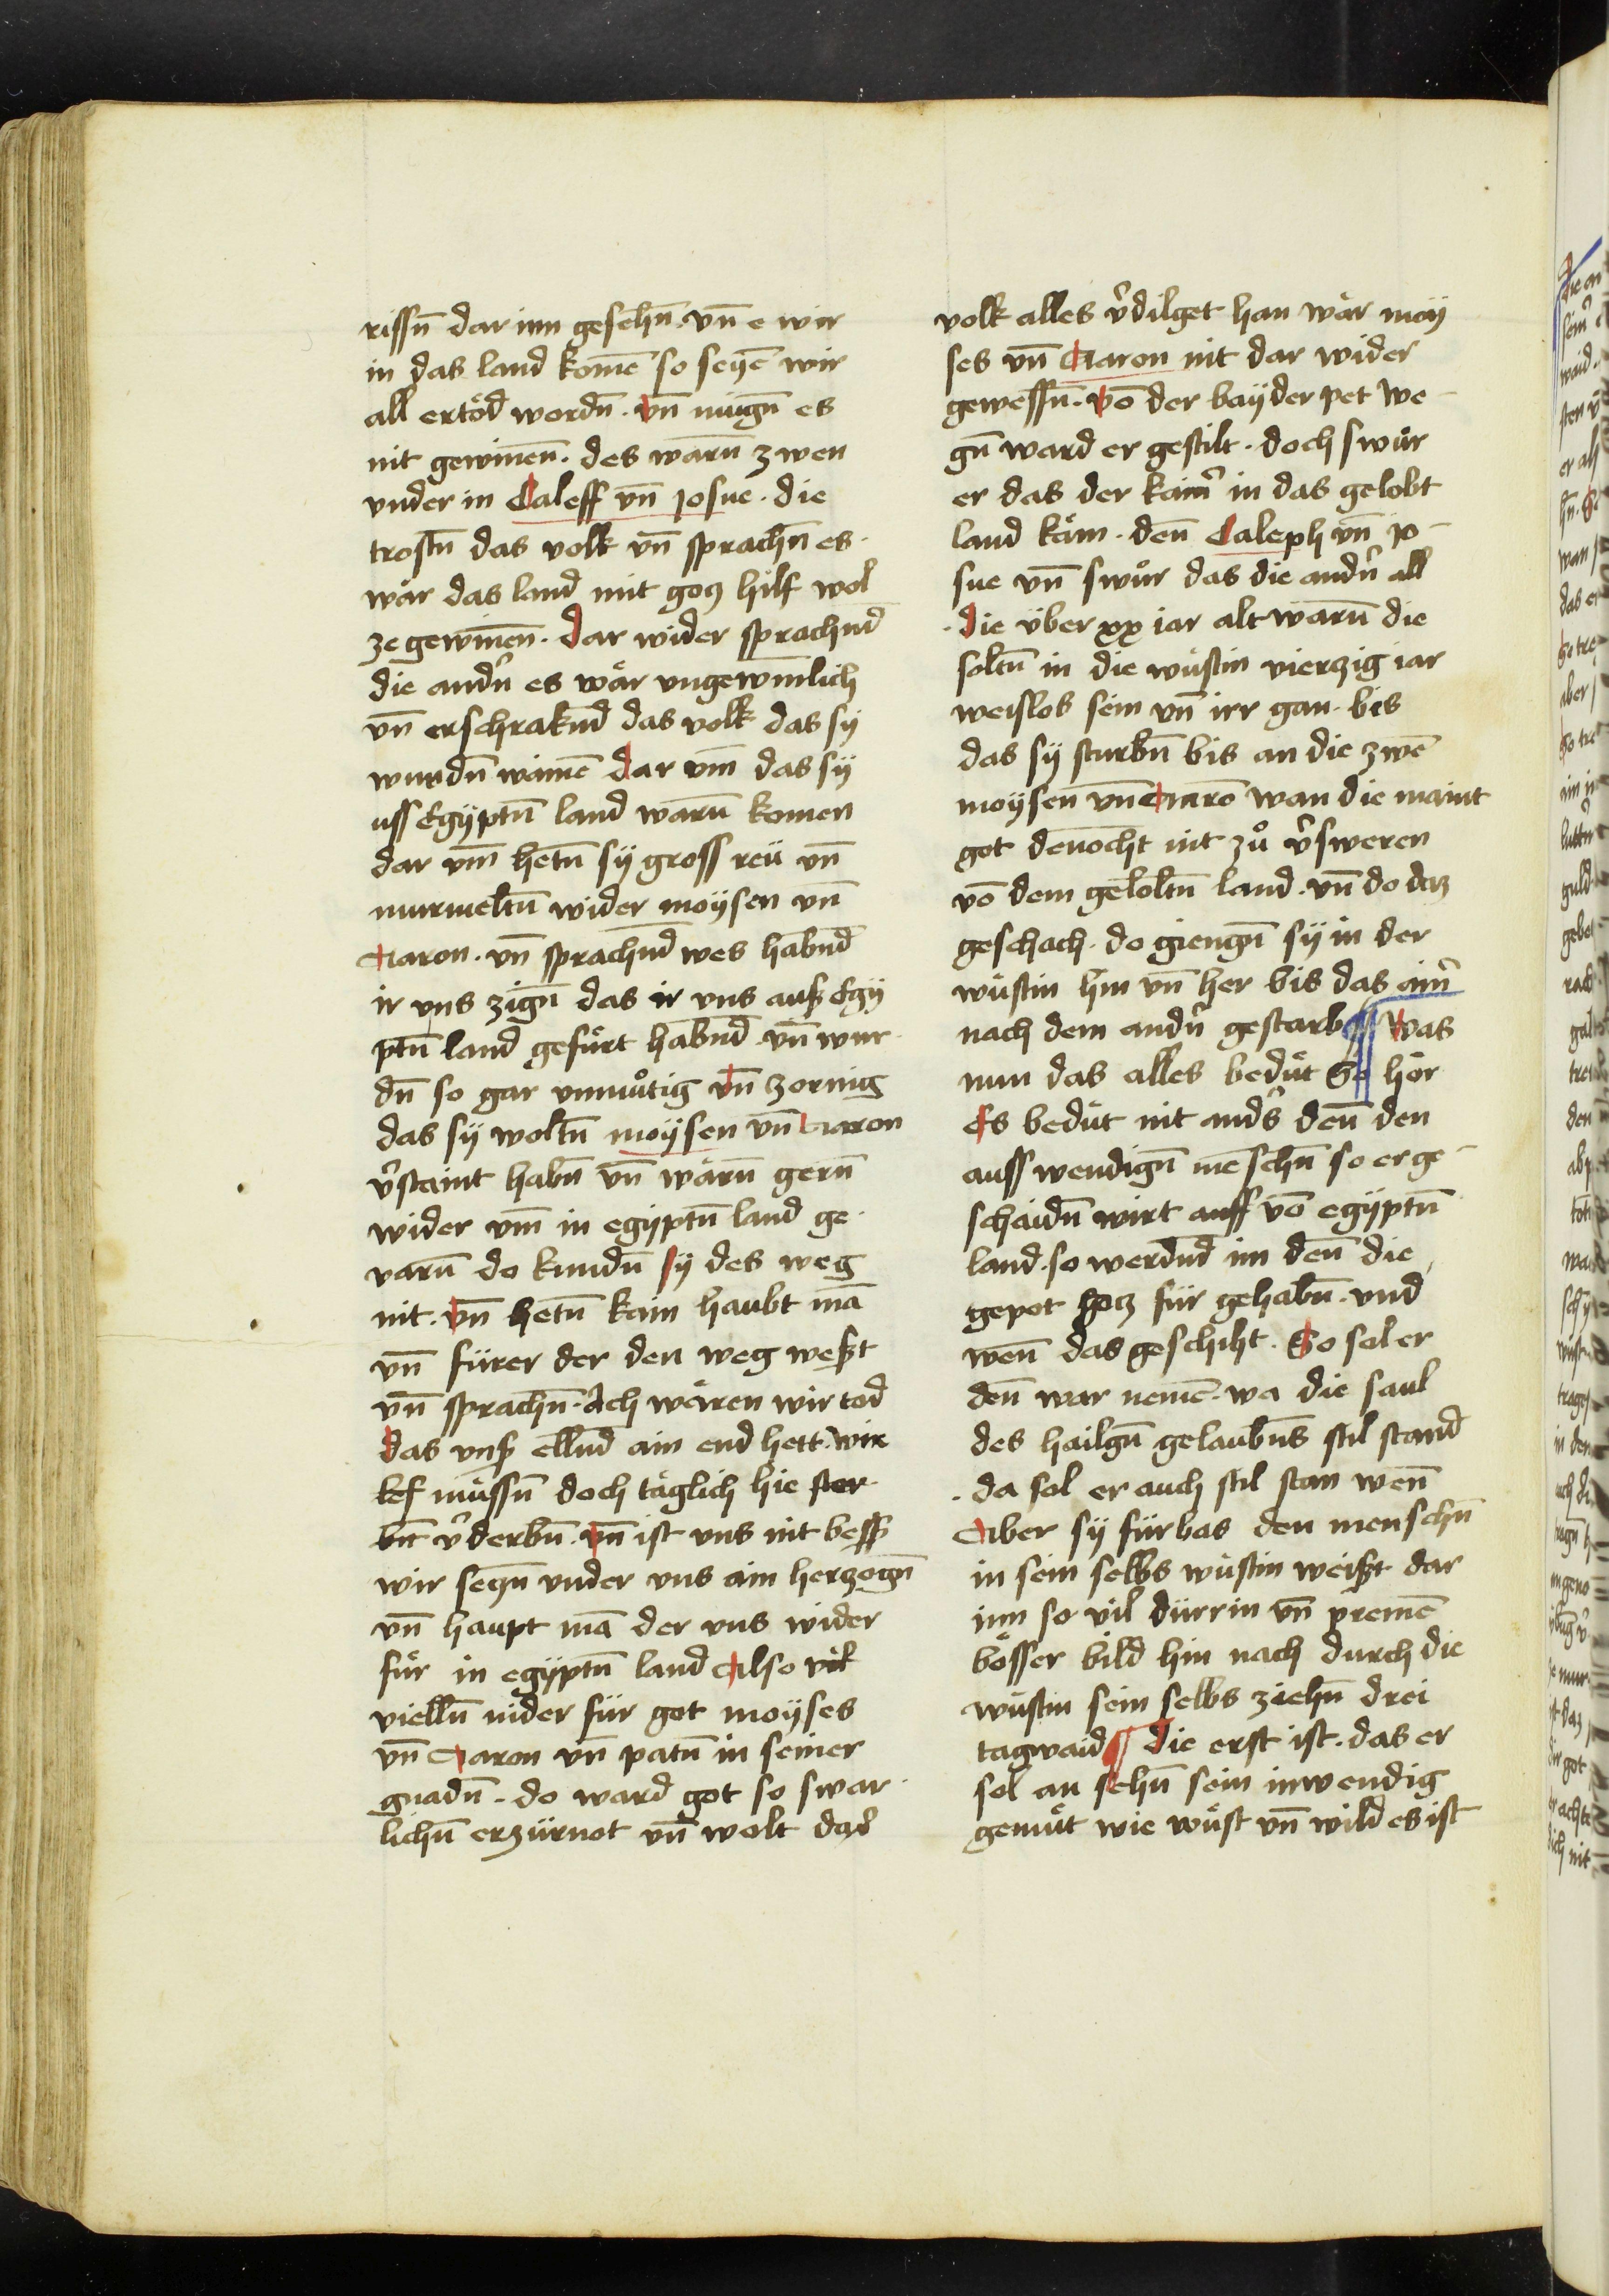 rissn̄ dar inn gesehn̄. vn̄ e wir
in das land komē so seyē wir
all ertöd wordn̄. vn̄ mügn̄ es
nit gewinen̄. des warn̄ zwen
vnder in Caleff vn̄ josue. die
trostn̄ das volk vn̄ sprachn̄ es.
wär das land mit gocz hilf wol
ze gewinen̄. Dar wider sprachnd
die andn̄ es wär vngewinlich
vn̄ erschraknd das volk das sÿ
wurdn̄ wainē dar vm̄ das sÿ
uss Egÿptn̄ land warn̄ komen
dar vm̄ hetn̄ sÿ gross reü vn̄
murmeltn̄ wider moÿsen vn̄
Aaron. vn̄ sprachnd wes habnd
ir vns zign̄ das ir vns auß Egÿ
ptn̄ land gefürt habnd vn̄ wur
dn̄ so gar vnmůtig vn̄ zornig
das sÿ woltn̄ moÿsen vn̄ Aaron
v̉staint habn̄ vn̄ wärn̄ gern̄
wider vm̄ in egÿptn̄ land ge.
varn̄ do kundn̄ sÿ des weg
nit. vn̄ hetn̄ kain haubt mā
vn̄ fürer der den weg weßt
vn̄ sprachn̄. Ach wären wir tod
das vnß ellnd ain end hett. wir
müssn̄ doch täglich hie ster.
bn̄ v̉derbn̄. vn̄ ist vns nit beß
wir seczn̄ vnder vns ain herzogn̄
vn̄ haupt mā der vns wider
für in egÿptn̄ land Also vil
vielln̄ nider für got moÿses
vn̄ Aaron vn̄ patn̄ in seiner
gnadn̄. do ward got so swar
lichn̄ erzürnot vn̄ wolt dacz
volk alles v̉dilget han wär moÿ
ses vn̄ Aaron nit dar wider
gewessn̄. vō der baÿder pet we-
gn̄ ward er gestilt. doch swůr
er das der kain̉ in das gelobt
land käm. den̄ Caleph vn̄ jo-
sue vn̄ swůr das die andn̉ all
die über xx iar alt warn̄ die
soltn̄ in die wüstin vierzig iar
weislos sein vn̄ irr gan. bis
das sÿ sturbn̄ bis an die zwē
moÿsen vn̄ Aarō wan die maint
got den̄ocht nit zů v̉sweren
vō dem gelobtn̄ land. vn̄ do daz
geschach. do giengn̄ sÿ in der
wüstin hin vn̄ her bis das ain̉
nach dem andn̉ gestarb ¶ Was
nun das alles bedüt So hör
Es bedüt nit and̉s den̄ den
auss wendign̄ mēschn̄ so er ge-
schaidn̄ wirt auff vō egÿptn̄
land. so werdnd im den̄ die
gepot gocz für gehabn̄. vnd
wen̄ das geschiht. So sol er
den̄ war nemē. wa die saul
des hailgn̄ gelaubns stil stand
. da sol er auch stil stan wen̄
Aber sÿ fürbas den menschn̄
in sein selbs wüstin weißt dar
inn so vil dürrin vn̄ premē
bösser bild hin nach durch die
wüstin sein selbs ziehn̄ drei
tagwaid ¶ Die erst ist. das er
sol an sehn̄ sein inwendig
gemüt wie wüst vn̄ wild es ist